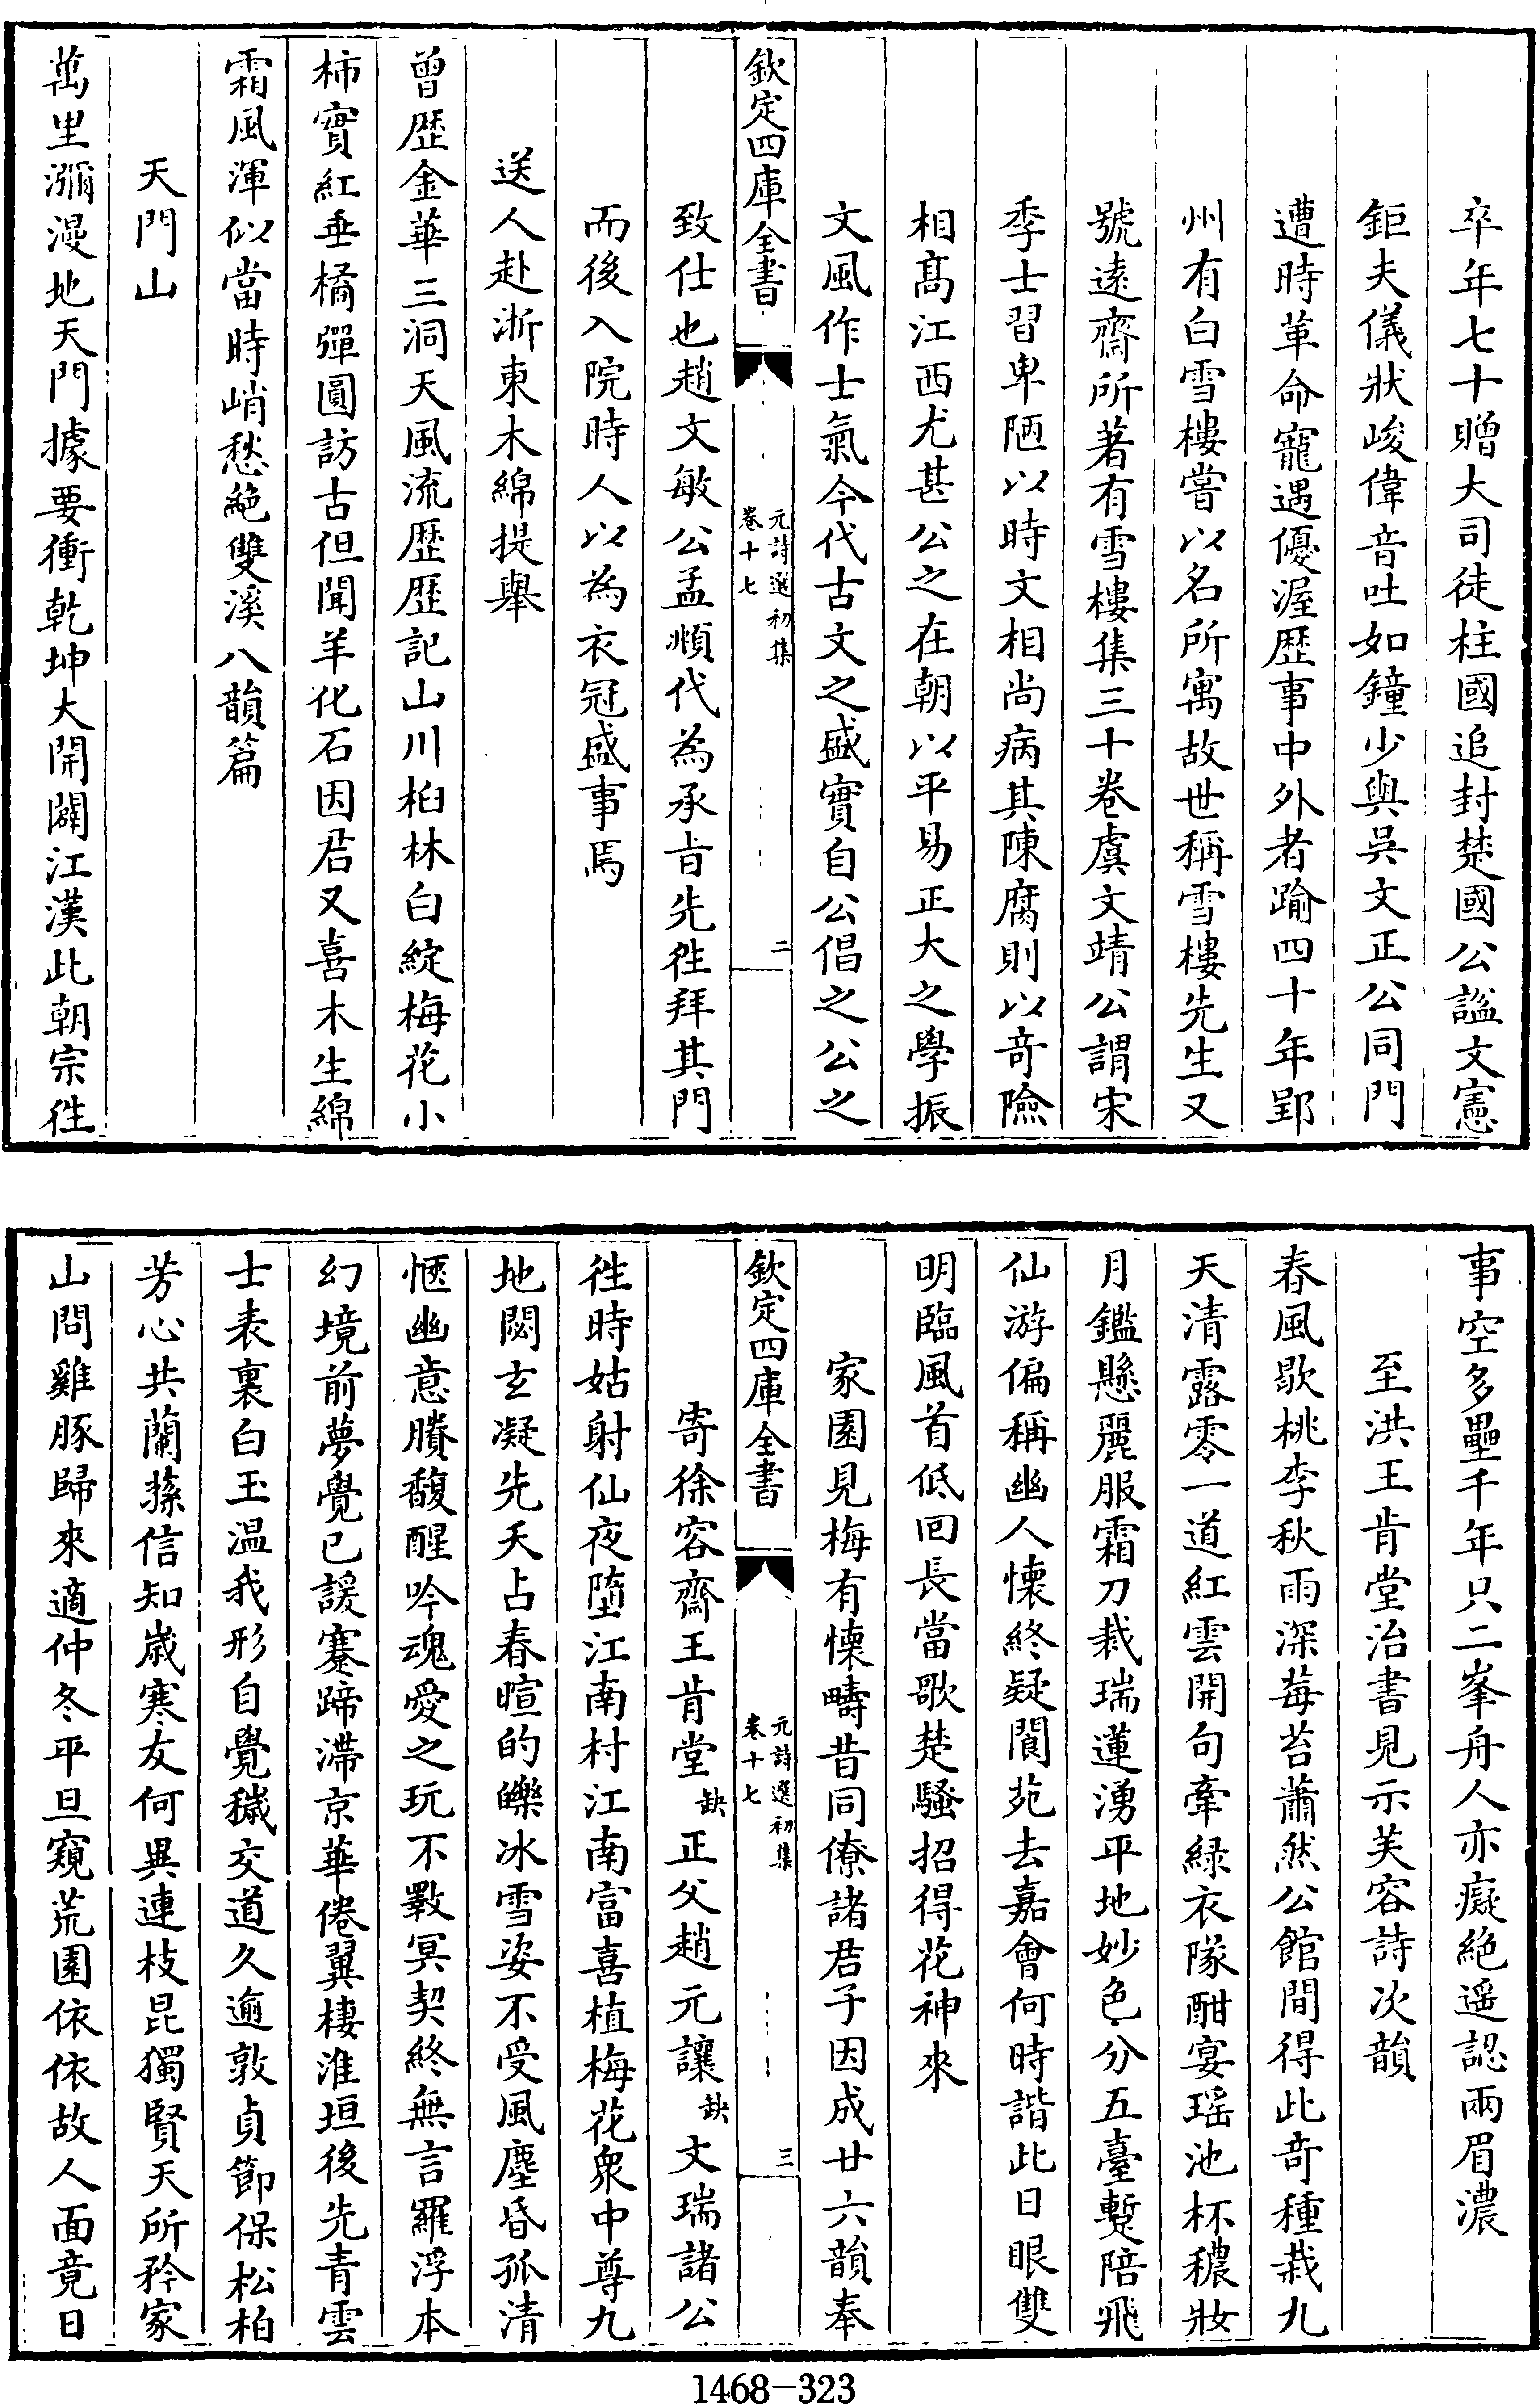 卒年七十贈大司徒柱國追封楚國公諡文憲
鉅夫儀狀峻偉音吐如鐘少與吳文正公同門
遭時革命寵遇優渥歴事中外者踰四十年郢
州有白雪樓嘗以名所寓故世稱雪樓先生又
號遠齋所著有雪樓集三十卷虞文靖公謂宋
季士習卑陋以時文相尚病其陳腐則以竒險
相髙江西尤甚公之在朝以平易正大之學振
文風作士氣今代古文之盛實自公倡之公之
欽定四庫全書
元詩選初集
卷十七
二
致仕也趙文敏公孟頫代為承㫖先徃拜其門
而後入院時人以為衣冠盛事焉
送人赴浙東木綿提舉
曾歴金華三洞天風流歴歴記山川桕林白綻梅花小
柿實紅垂橘彈圓訪古但聞羊化石因君又喜木生綿
霜風渾似當時峭愁絶雙溪八韻篇
天門山
萬里瀰漫地天門據要衝乾坤大開闢江漢此朝宗徃
事空多壘千年只二峯舟人亦癡絶遥認兩眉濃
至洪王肯堂治書見示芙容詩次韻
春風歇桃李秋雨深莓苔蕭然公館間得此竒種栽九
天清露零一道紅雲開句牽緑衣隊酣宴瑶池杯穠妝
月鑑懸麗服霜刀裁瑞蓮湧平地妙色分五臺蹔陪飛
仙游偏稱幽人懷終疑閬苑去嘉會何時諧此日眼雙
明臨風首低回長當歌楚騷招得花神來
家園見梅有懐疇昔同僚諸君子因成廿六韻奉
欽定四庫全書
元詩選初集
卷十七
三
寄徐容齋王肯堂缺正父趙元讓缺文瑞諸公
徃時姑射仙夜墮江南村江南富喜植梅花衆中尊九
地閟玄凝先天占春暄的皪冰雪姿不受風塵昏孤清
愜幽意賸馥醒吟魂愛之玩不斁冥契終無言羅浮本
幻境前夢覺已諼蹇蹄滯京華倦翼棲淮垣後先青雲
士表裏白玉温我形自覺穢交道久逾敦貞節保松柏
芳心共蘭蓀信知嵗寒友何異連枝昆獨賢天所矜家
山問雞豚歸來適仲冬平旦窺荒園依依故人面竟日
1468-323